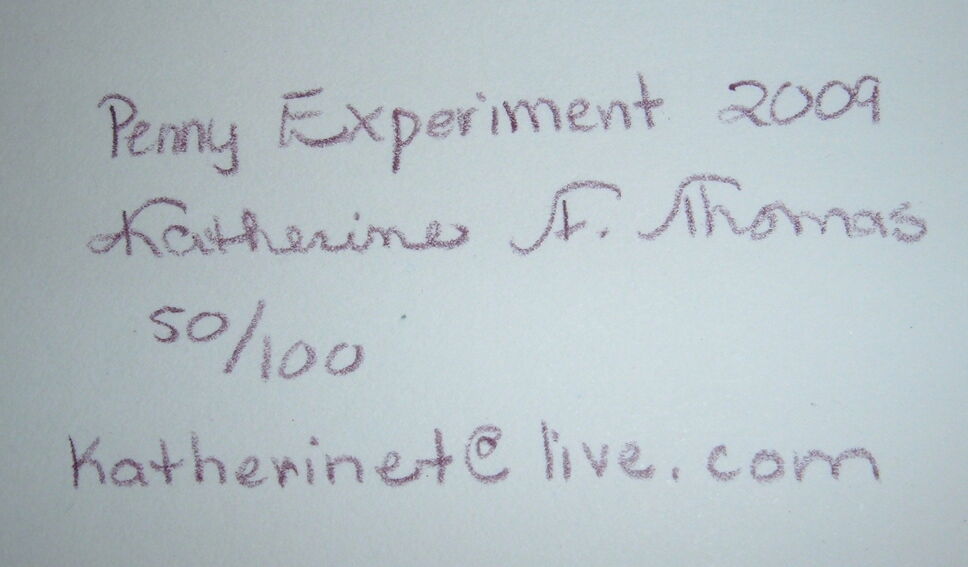 Penny Experiment 2009
Katherine F. Thomas
50/100
Katherinet@live.com